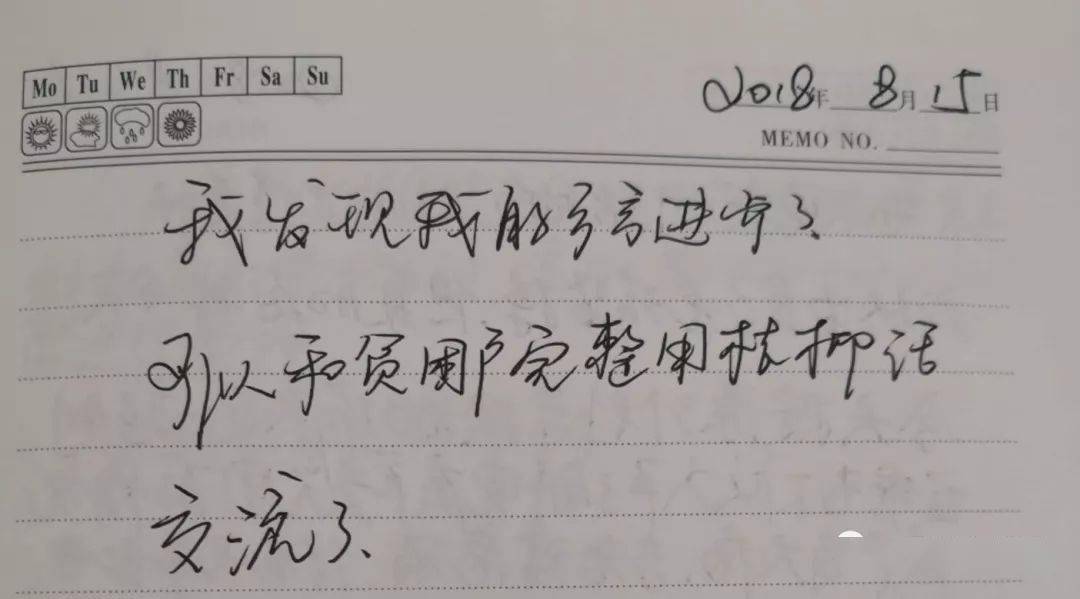 Mo Tu We Th Fr Sa Su
2018年 8月 15日
MEMO NO.
我发现我的语言进步了、
可以和贫困户完整用桂柳话
交流了、